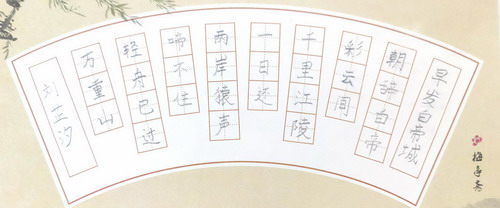 早发白帝城
朝辞白帝
彩云间
千里江陵
一日还
两岸猿声
啼不住
轻舟已过
万重山
刘芷汐